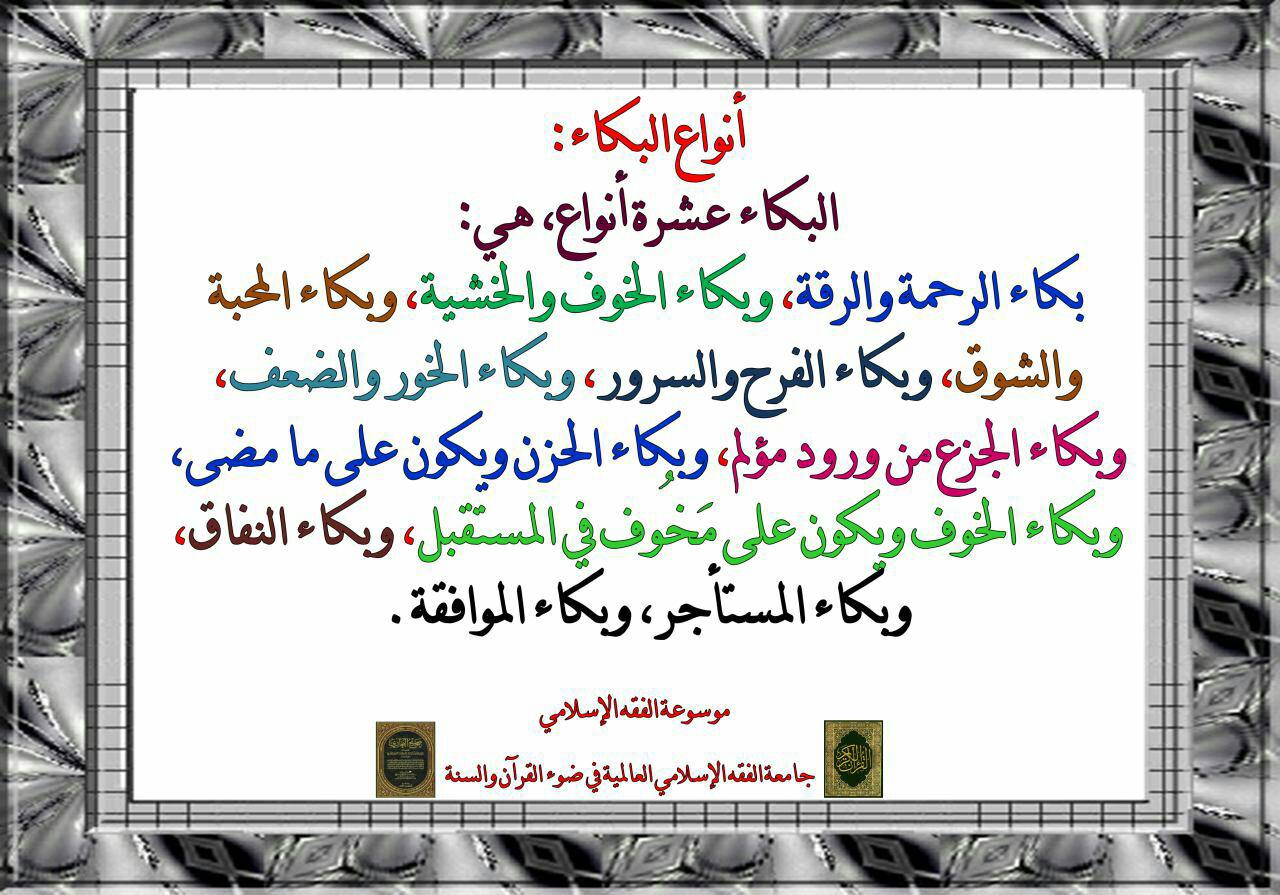 أنواع البكاء:
البكاء عشرة أنواع، هي:
بكاء الرحمة والرقة، وبكاء الخوف والخشية، وبكاء المحبة
والشوق، وبكاء الفرح والسرور، وبكاء الخور والضعف،
وبكاء الجزع من ورود مؤلم، وبكاء الحزن ويكون على ما مضى،
وبكاء الخوف ويكون على مَخُوف في المستقبل، وبكاء النفاق،
وبكاء المستأجر، وبكاء الموافقة.
موسوعة الفقه الإسلامي
جامعة الفقه الإسلامي العالمية في ضوء القرآن والسنة
القرآن الكريم
صحيح البخاري